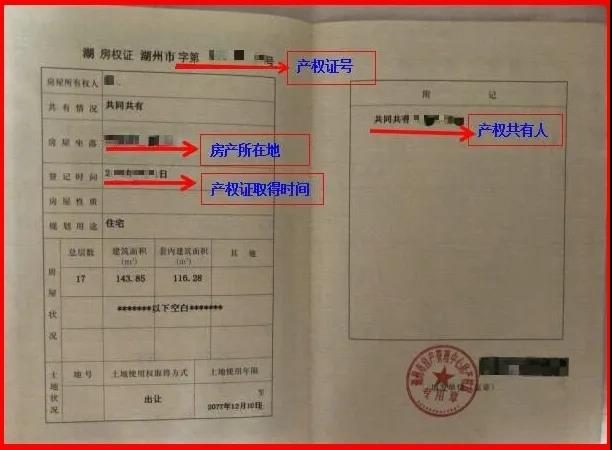 湖 房权证 湖州市 字第 号
产权证号
房屋所有权人
共有情况 共同共有
房屋坐落
房产所在地
登记时间 2 日
产权证取得时间
房屋性质
规划用途 住宅
房屋状况
总层数 建筑面积(m²) 套内建筑面积(m²) 其他
17 143.85 116.28
*******以下空白*******
土地状况
地号 土地使用权取得方式 土地使用年限
出让 至
2077年12月10日
附 记
共同共有
产权共有人
专用章